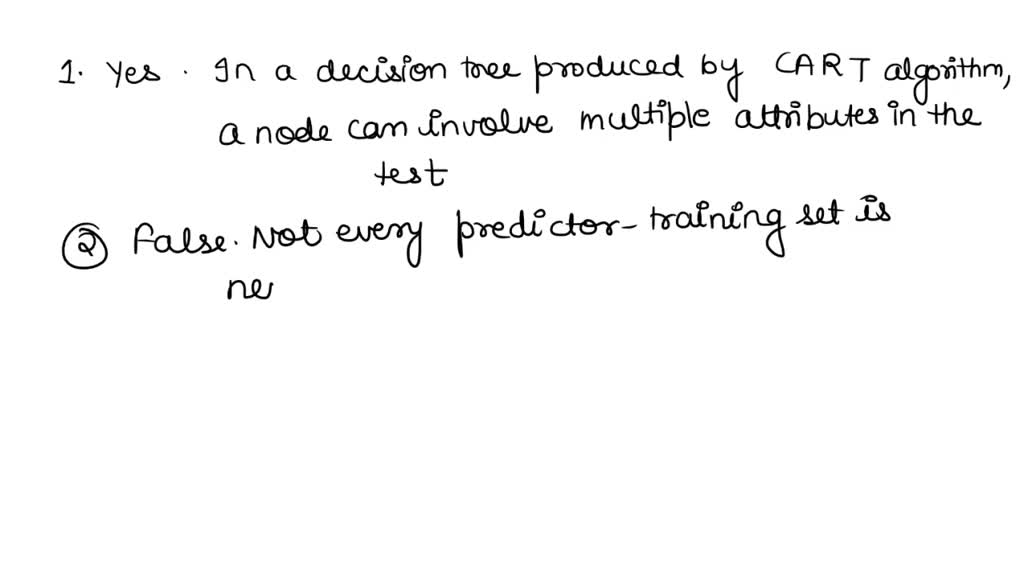 1. Yes. In a decision tree produced by CART algorithm,
a node can involve multiple attributes in the
test
② False. Not every predictor-training set is
ne